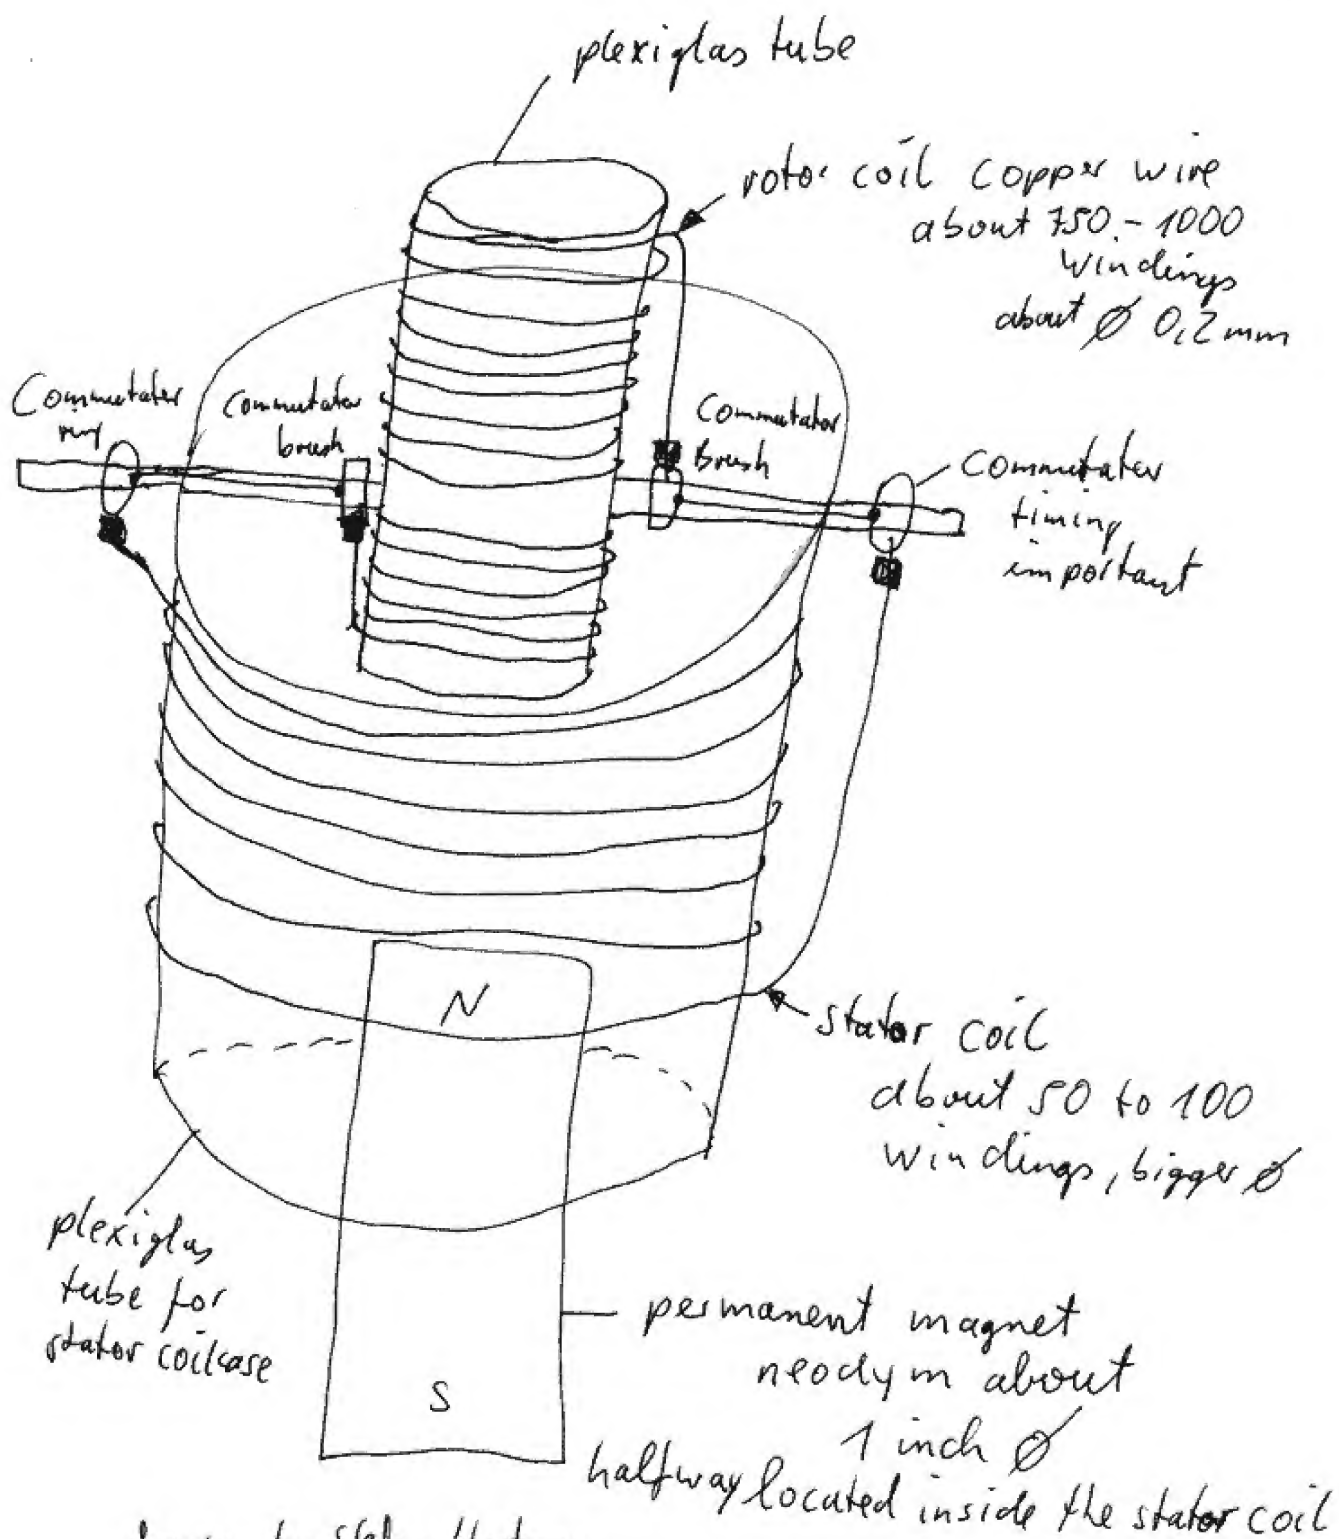 plexiglas tube
rotor coil copper wire
about 750 - 1000
windings
about ø 0,2 mm
Commutater
ring
Commutator
brush
Commutator
Brush
Commutater
timing
important
N
stator coil
about 50 to 100
windings, bigger ø
plexiglas
tube for
stator coilcase
permanent magnet
neodym about
1 inch ø
S
halfway located inside the stator coil